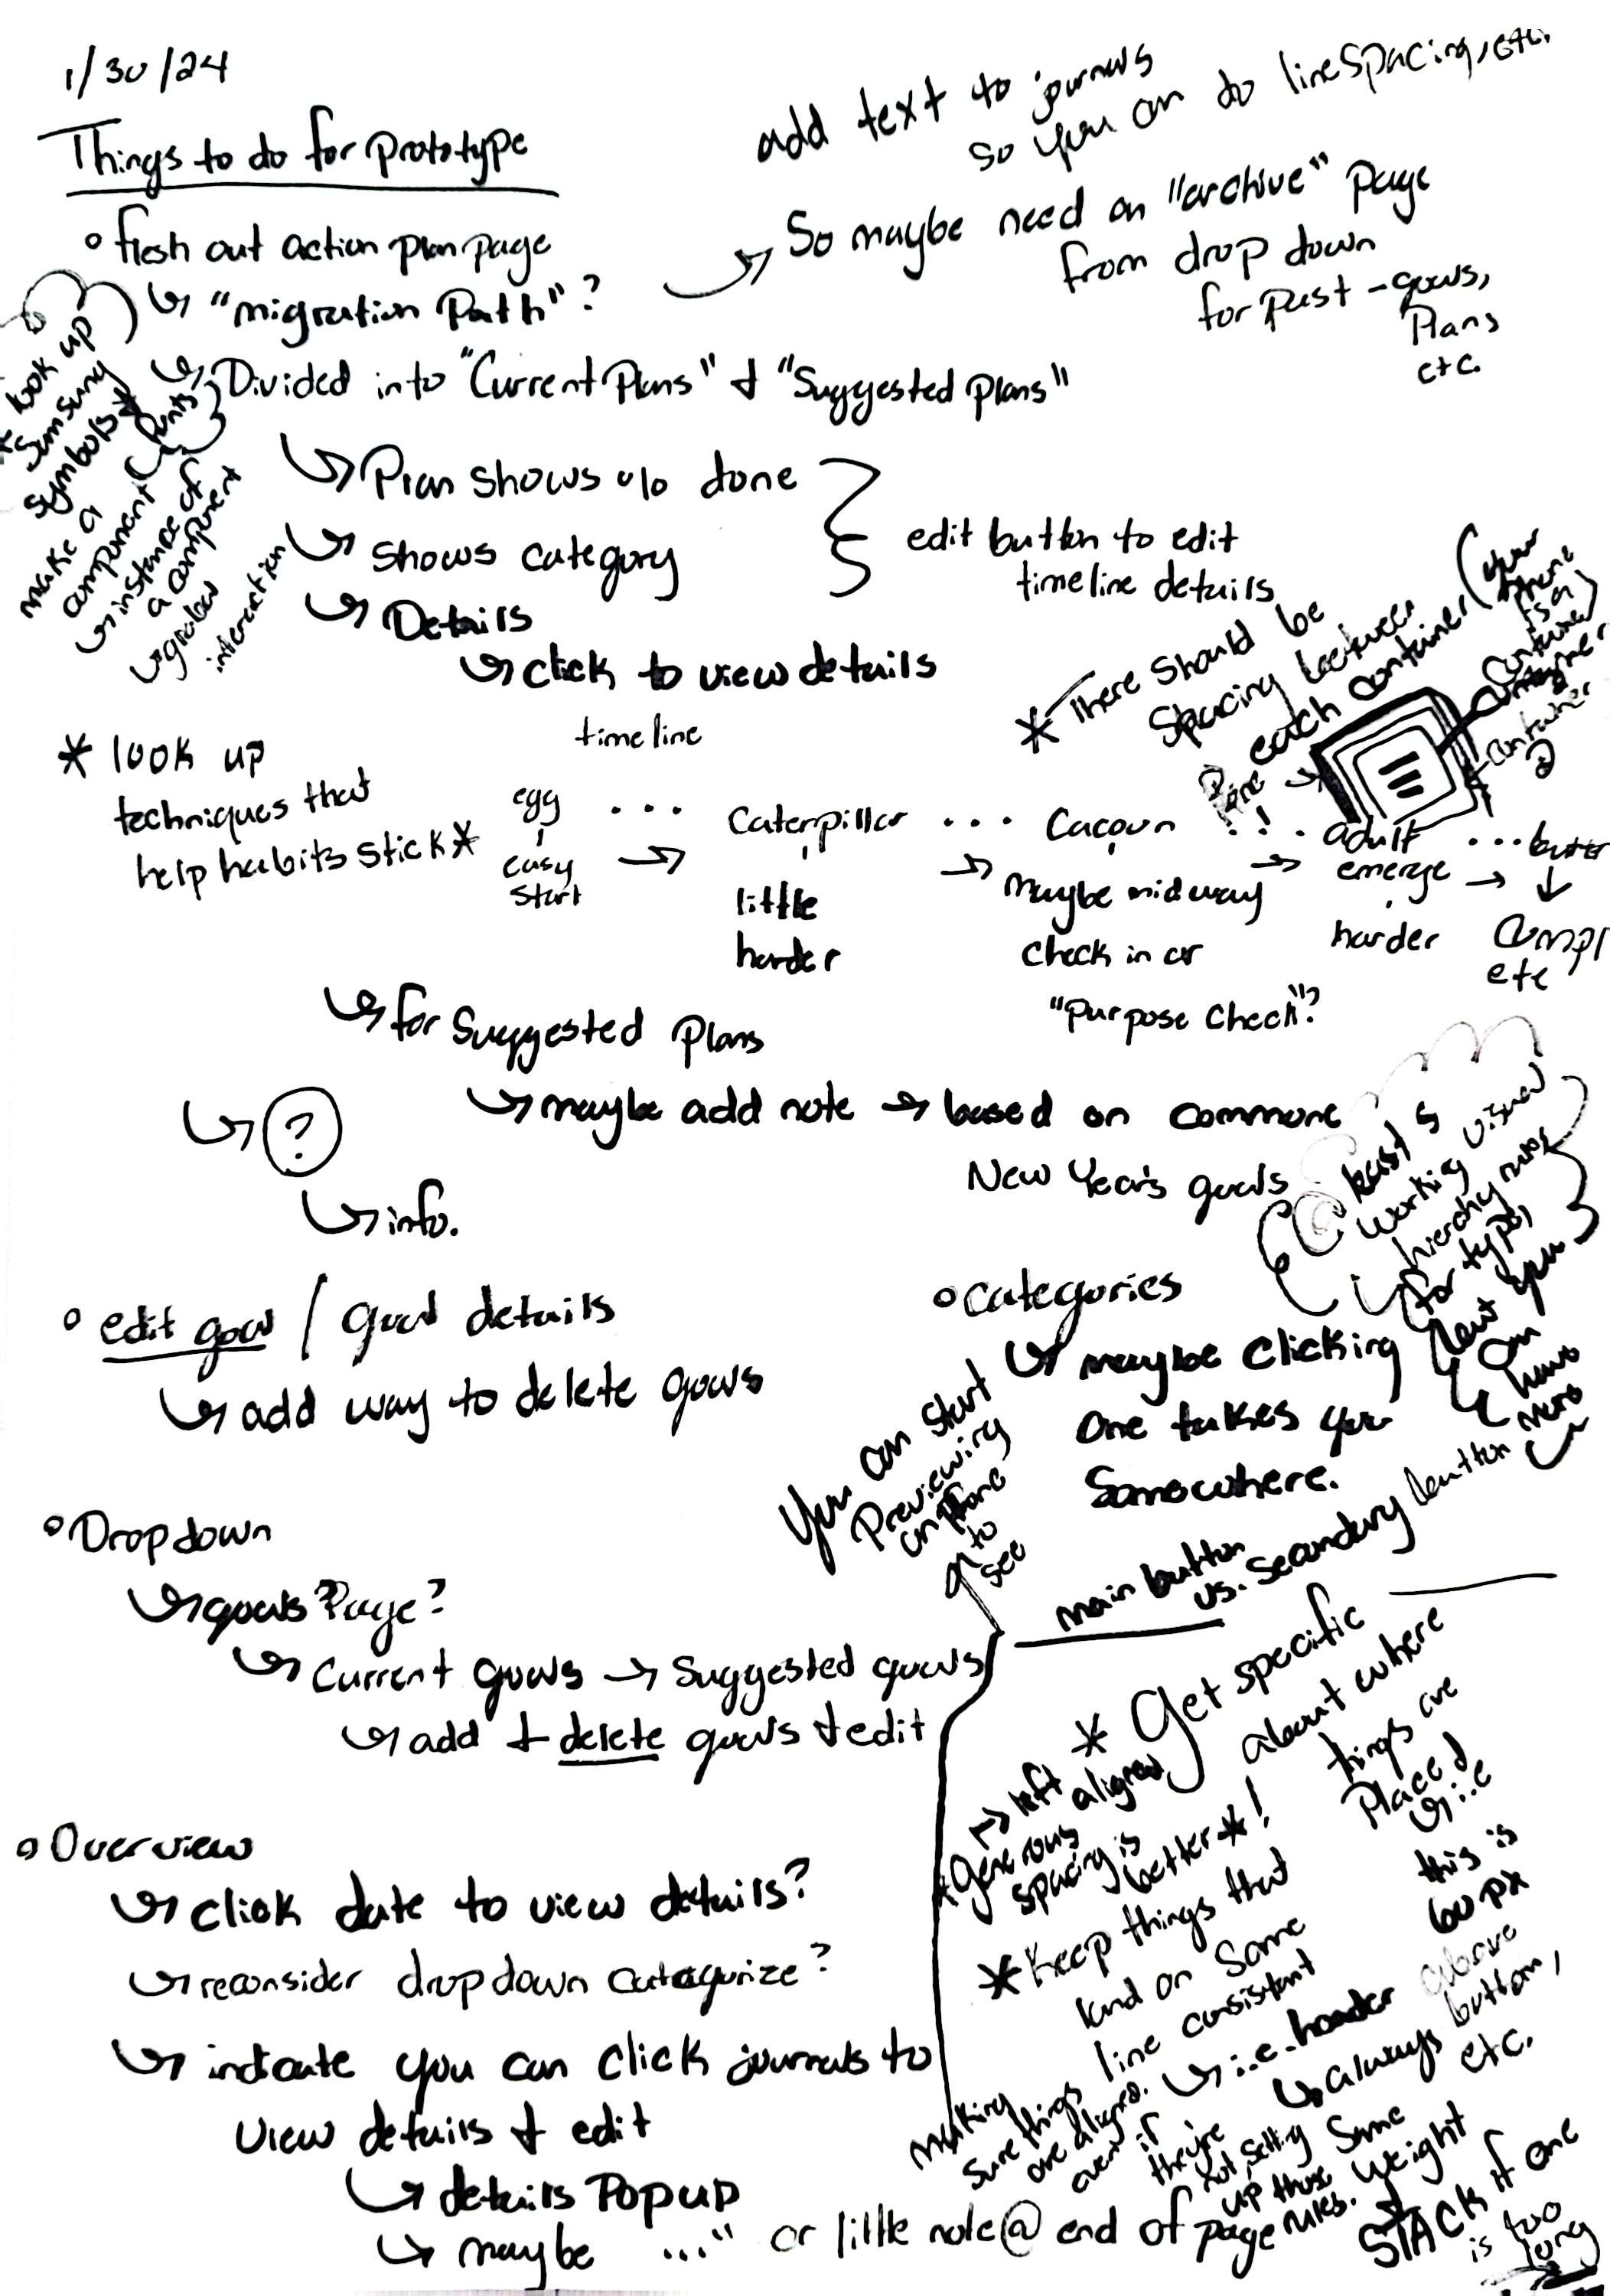 1/30/24
Things to do for prototype
add text to journals
so you can do line spacing, etc.
flesh out action plan page
↳ "migration Path"?
→ So maybe need an "archive" page
from drop down
for past - goals,
Plans
etc.
↳ Divided into "Current Plans" & "Suggested plans"
* look up
Samsung
Symbols &
fonts
make a
component
↳ instance of
a component
↳ global
interaction
↳ Plan shows % done
↳ shows category
↳ Details
edit button to edit
timeline details
↳ click to view details
* There should be
spacing between
each container (your
phone
is a
container)
container
timeline
* look up
techniques that
help habits stick *
egg ... Caterpillar ... Cacoon ... adult ...
easy
start
→ little
harder
→ maybe midway
check in or
"purpose check"?
→ emerge →
harder
compl
ete
↳ for Suggested Plans
↳ maybe add note → based on common
New Year's goals
↳ ?
↳ info.
working visual
for type,
but you
can
have
more
edit goal / goal details
↳ add way to delete goals
Categories
↳ maybe clicking
one takes you
somewhere.
You can start
previewing
on phone
to
see
main button
vs. secondary button
Dropdown
↳ goals Page?
↳ Current goals → Suggested goals
↳ add & delete goals & edit
* Get specific
about where
things are
placed
↳ i.e
this is
60 px
above
button,
etc.
→ left
aligned
* Generous
spacing is
better *!
* Keep things that
land on same
line consistant
↳ i.e. header
↳ always
same
weight
making
sure things
are aligned.
even if
they're
not, setting
up those
rules.
STACK if one
is too
long
Overview
↳ click date to view details?
↳ reconsider dropdown categorize?
↳ indicate you can click journals to
view details & edit
↳ details Popup
↳ maybe ..." or little note @ end of page